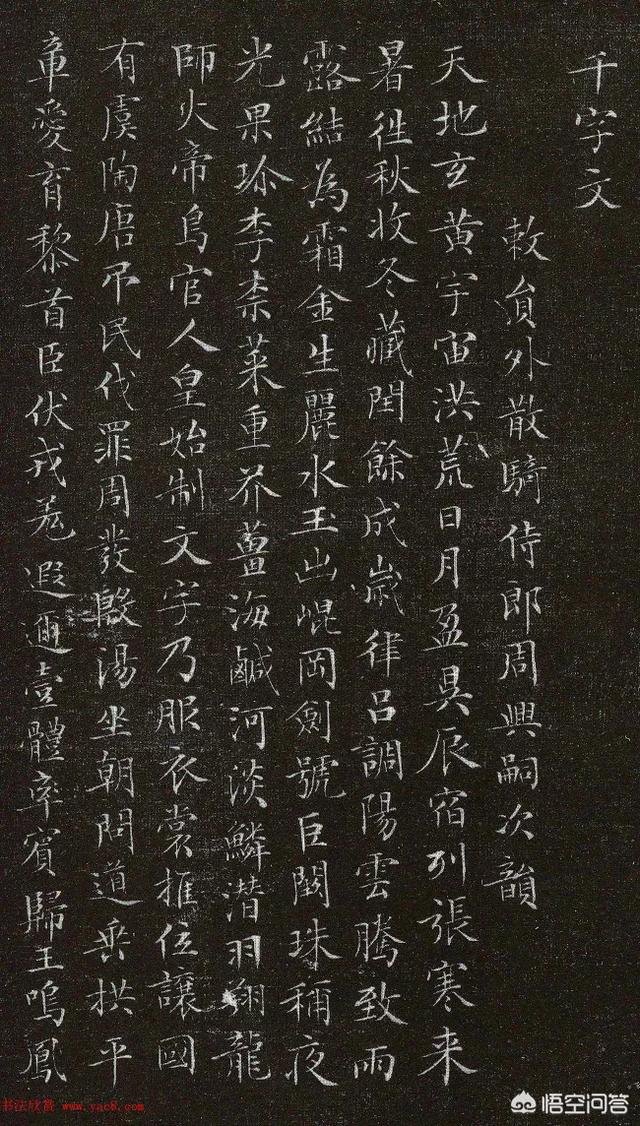 千字文
敕員外散騎侍郎周興嗣次韻
天地玄黃宇宙洪荒日月盈昃辰宿列張寒来
暑往秋收冬藏閏餘成歲律呂調陽雲騰致雨
露結為霜金生麗水玉出崐岡劍號巨闕珠稱夜
光果珎李柰菜重芥薑海鹹河淡鱗潛羽翔龍
師火帝鳥官人皇始制文字乃服衣裳推位讓國
有虞陶唐吊民伐罪周發殷湯坐朝問道垂拱平
章愛育黎首臣伏戎羌遐邇壹體率賓歸王鳴鳳
书法欣赏 www.yac8.com
悟空问答